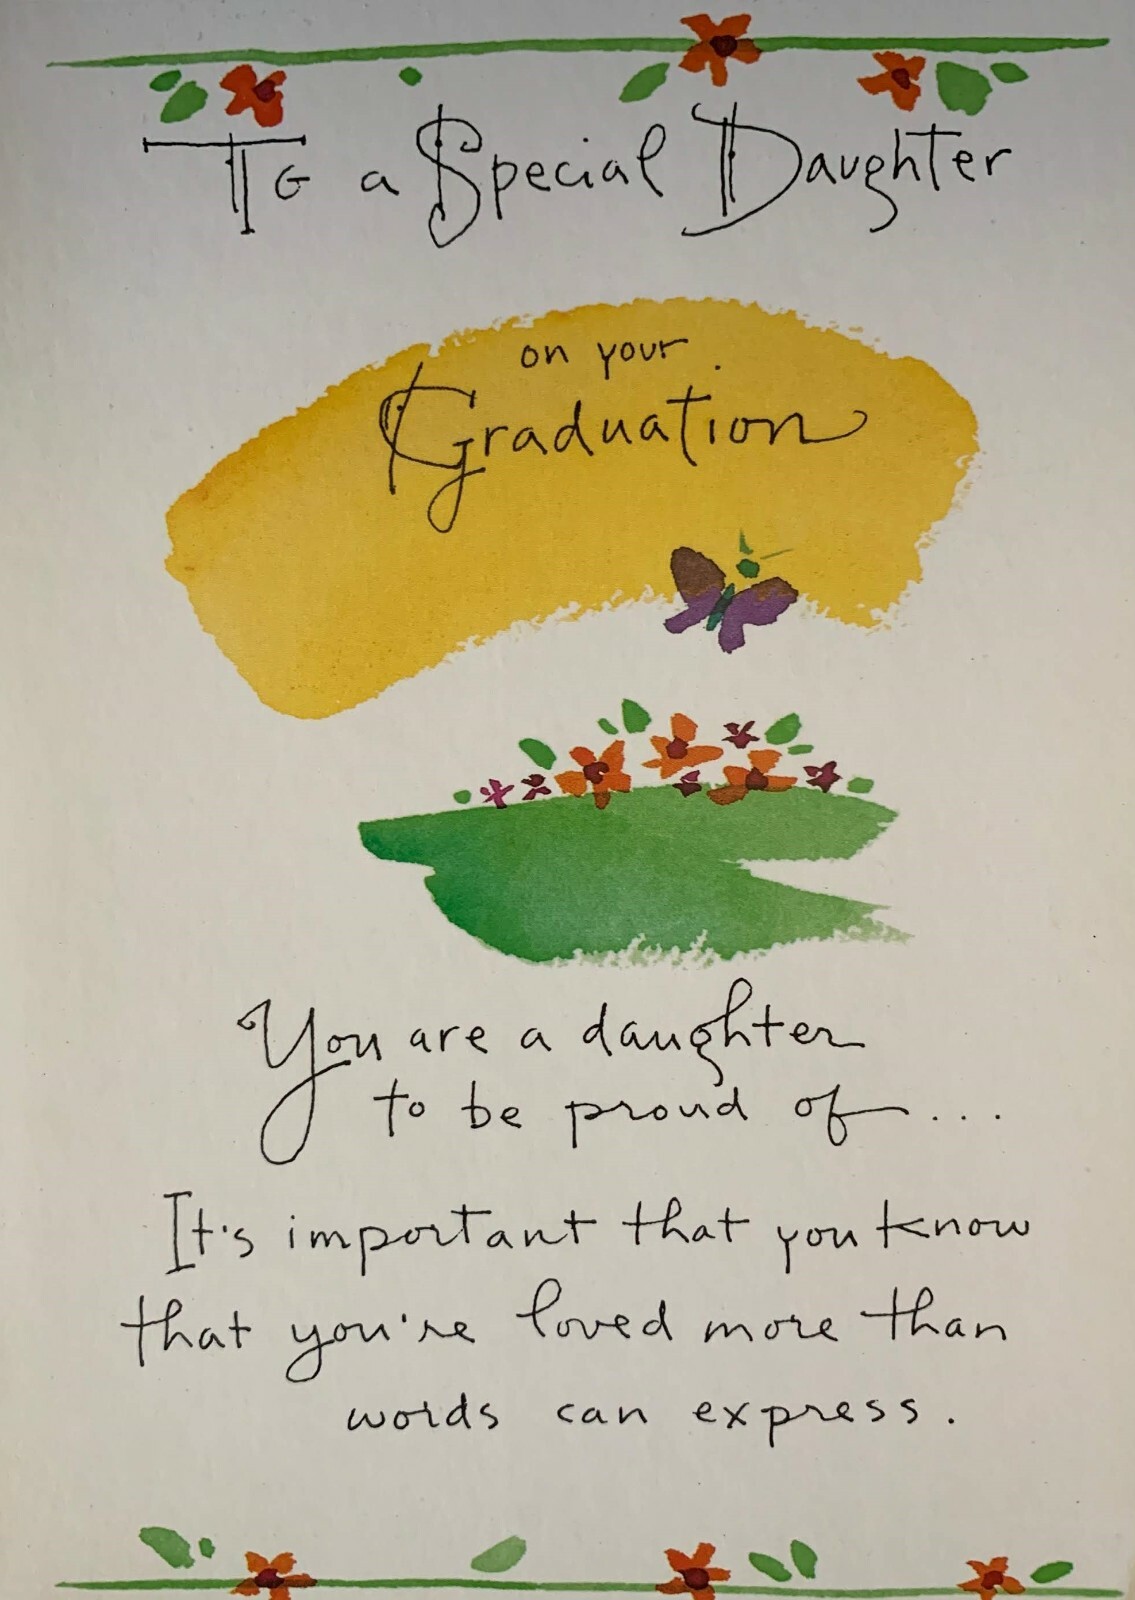 To a Special Daughter
on your
Graduation
You are a daughter
to be proud of...
It's important that you know
that you're loved more than
words can express.